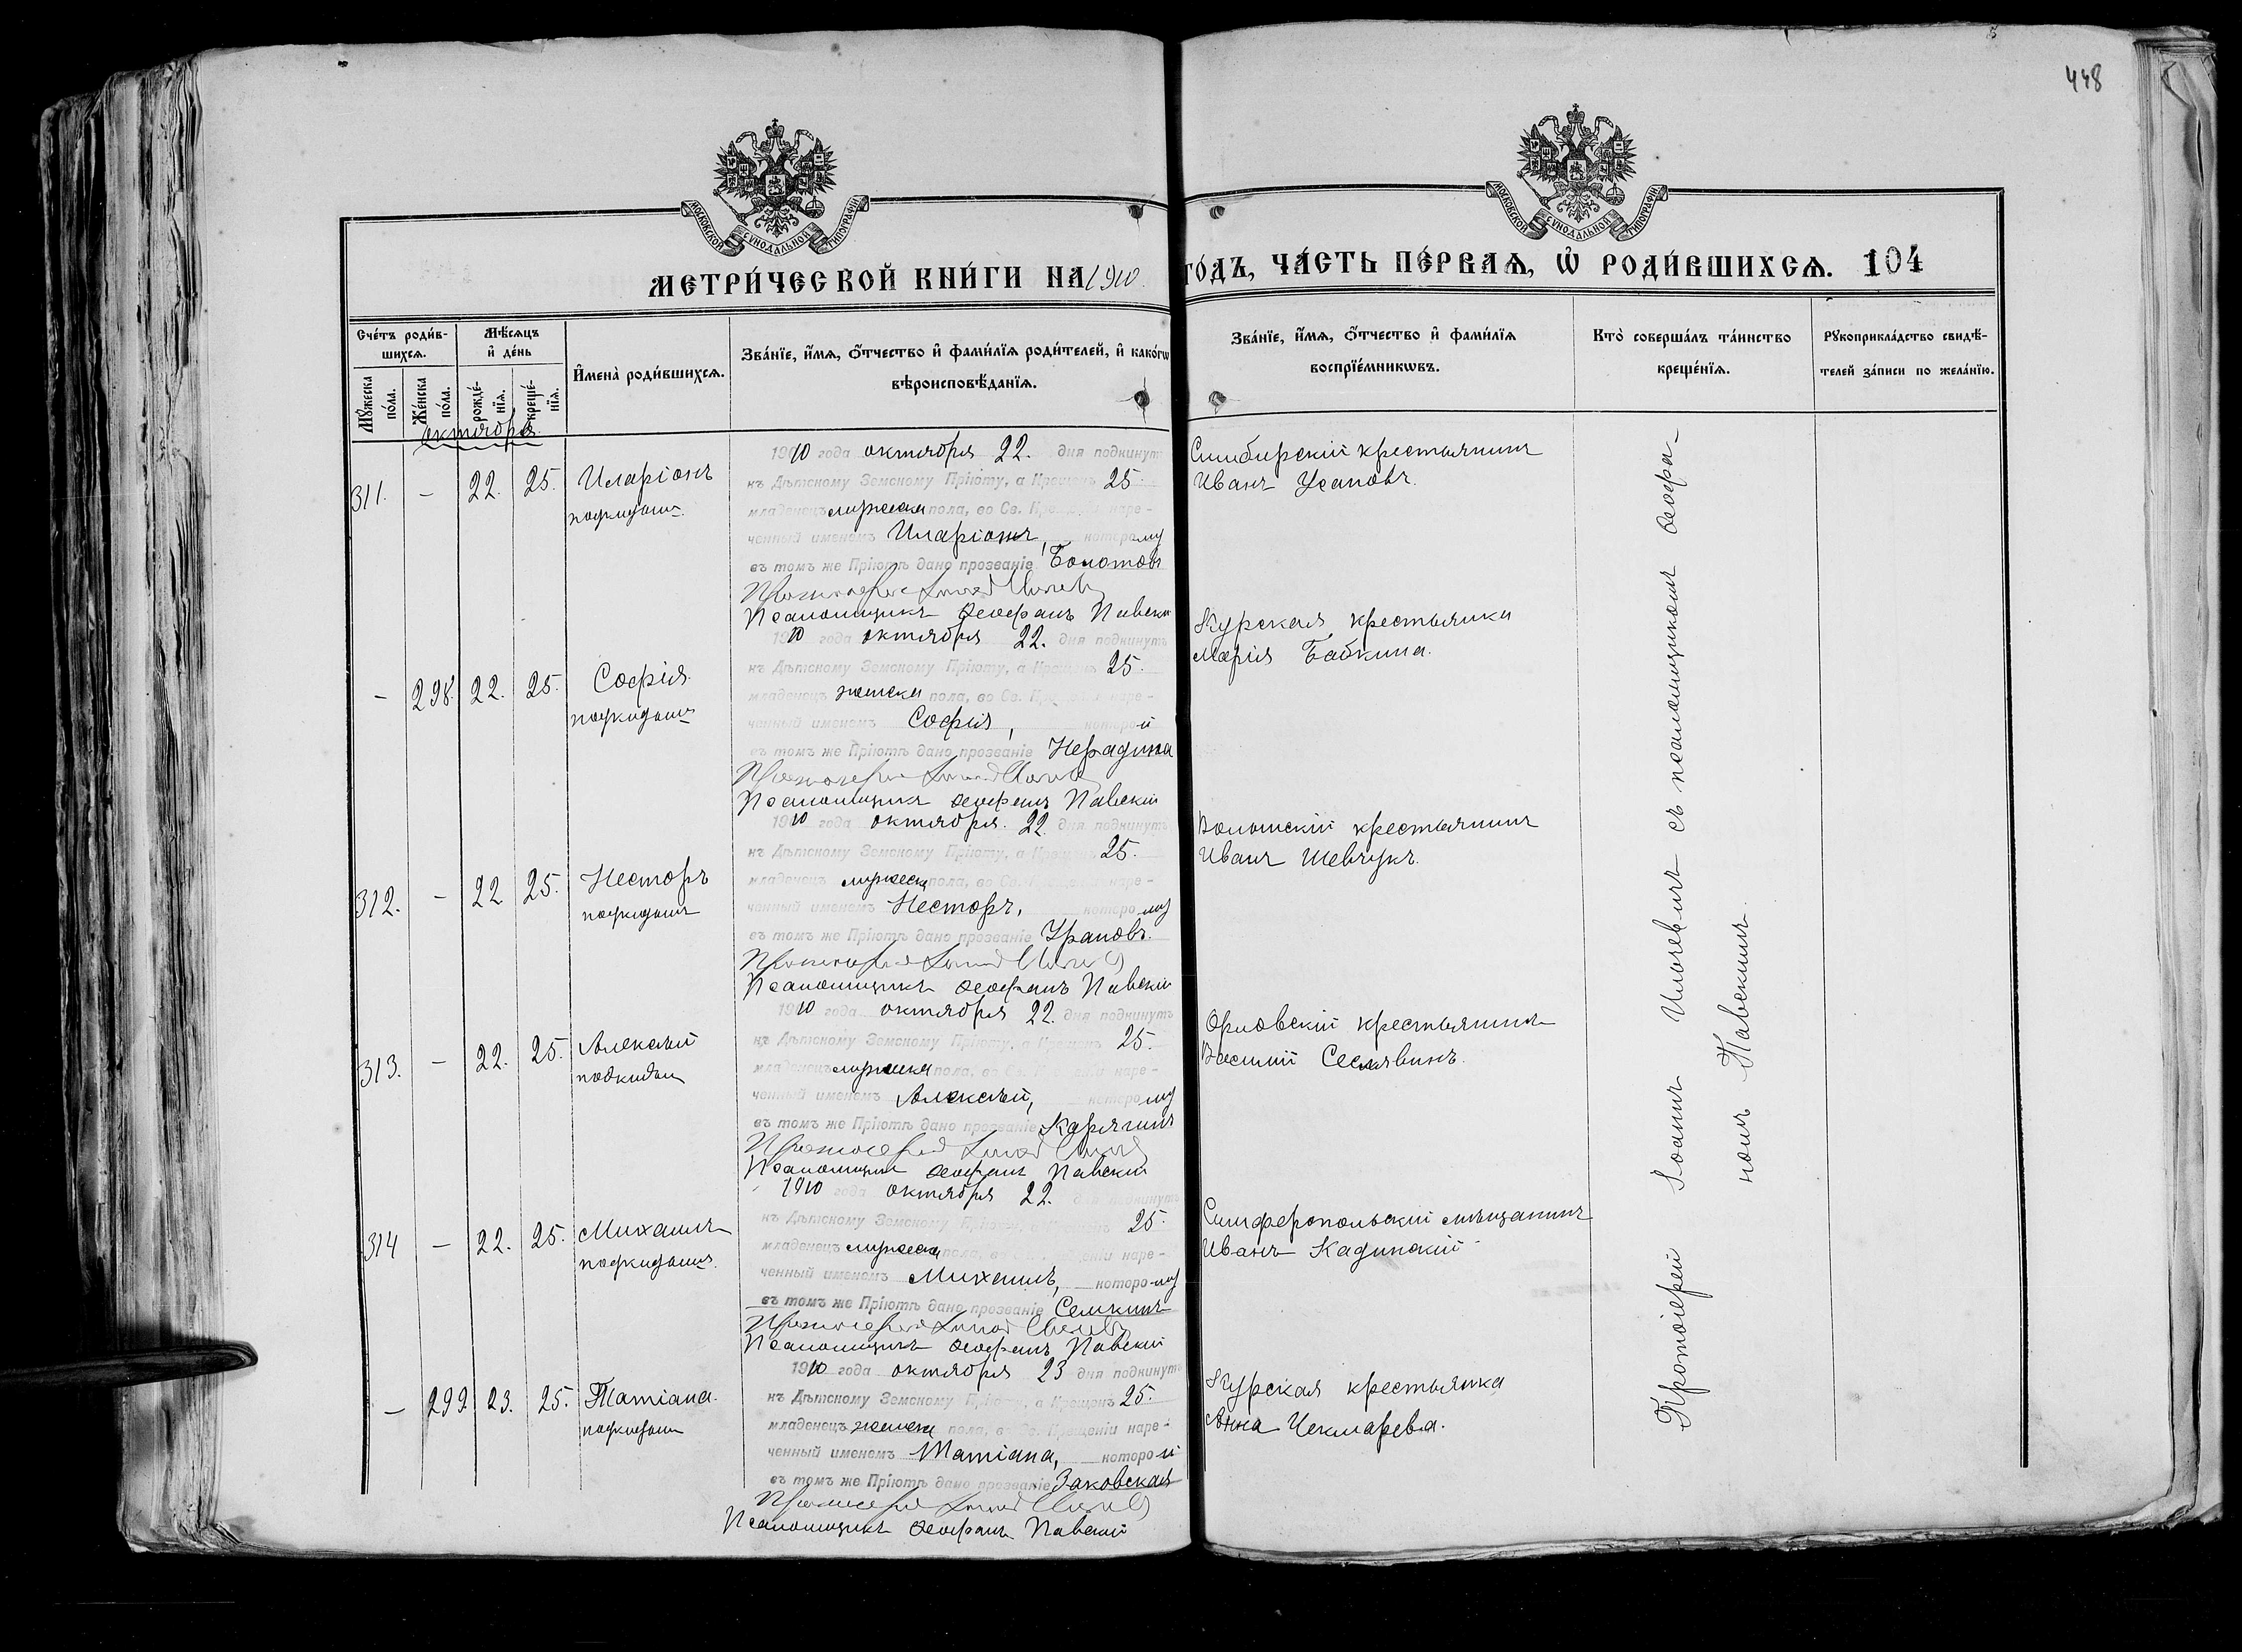 448
МОСКОВСКОЙ СѴНОДАЛЬНОЙ ТИПОГРАФІИ
МОСКОВСКОЙ СѴНОДАЛЬНОЙ ТИПОГРАФІИ
МЕТРИ́ЧЕСКОЙ КНИ́ГИ НА 1910
ГО́ДЪ, ЧА́СТЬ ПЕ́РВАѦ, Ѡ҆ РОДИ́ВШИХСѦ. 104
Сче́тъ роди́в-
шихсѧ.
Мꙋ́жеска по́ла.
Же́нска по́ла.
Мѣ́сѧцъ
и҆ де́нь
рожде́-
нїѧ.
креще́-
нїѧ.
И҆мена̀ роди́вшихсѧ.
Зва́нїе, и҆́мѧ, ѻ҆́тчество и҆ фами́лїѧ роди́телей, и҆ како́гѡ
вѣроисповѣ́данїѧ.
Зва́нїе, и҆́мѧ, ѻ҆́тчество и҆ фами́лїѧ
воспрїе́мникѡвъ.
Кто̀ соверша́лъ та́инство
креще́нїѧ.
Рꙋкоприкла́дство свидѣ́-
телей за́писи по жела́нїю.
октября
311. – 22. 25. Иларіонъ
подкидышъ.
1910 года октября 22. дня подкинутъ
къ Дѣтскому Земскому Пріюту, а Крещенъ 25.
младенецъ мужеска пола, во Св. Кре наре-
ченный именемъ Иларіонъ, которому
въ томъ же Пріютѣ дано прозваніе Болотовъ
Протоіерей
Псаломщикъ Ѳеофанъ Павскій
Симбирскій крестьянинъ
Иванъ Усановъ.
– 298. 22. 25. Софія
подкидышъ
1910 года октября 22. дня подкинутъ
къ Дѣтскому Земскому Пріюту, а Крещенъ 25.
младенецъ женска пола, во Св. Кре наре-
ченный именемъ Софія, которой
въ томъ же Пріютѣ дано прозваніе Нерадина
Протоіерей
Псаломщикъ Ѳеофанъ Павскій
Курская крестьянка
Марія Бабкина.
312. – 22 25. Несторъ
подкидышъ
1910 года октября. 22 дня подкинутъ
къ Дѣтскому Земскому Пріюту, а Крещенъ 25.
младенецъ мужеска пола, во Св. наре-
ченный именемъ Несторъ, которому
въ томъ же Пріютѣ дано прозваніе Урановъ.
Протоіерей
Псаломщикъ Ѳеофанъ Павскій
Волынскій крестьянинъ
Иванъ Шевчукъ.
313. – 22. 25. Алексѣй
подкидыш
1910 года октября 22. дня подкинутъ
къ Дѣтскому Земскому Пріюту, а Крещенъ 25.
младенецъ мужеска пола, во Св. наре-
ченный именемъ Алексѣй, которому
въ томъ же Пріютѣ дано прозваніе Карягинъ
Протоіерей
Псаломщикъ Ѳеофанъ Павскій
Орловскій крестьянинъ
Василій Сеславинъ.
314 – 22. 25. Михаилъ
подкидышъ.
1910 года октября 22. дня подкинутъ
къ Дѣтскому Земскому 25.
младенецъ мужеска пола, во наре-
ченный именемъ Михаилъ, которому
въ томъ же Пріютѣ дано прозваніе Семкинъ
Протоіерей
Псаломщикъ Ѳеофанъ Павскій
Симферопольскій мѣщанинъ
Иванъ Кадинскій
– 299 23. 25. Татіана.
подкидыш
1910 года октября 23 дня подкинутъ
къ Дѣтскому Земскому Пріюту, а Крещенъ 25.
младенецъ женска пола, во Св. Крещеніи наре-
ченный именемъ Татіана, которой
въ томъ же Пріютѣ дано прозваніе Заковская
Протоіерей
Псаломщикъ Ѳеофанъ Павскій
Курская крестьянка
Анна Чекмарева.
Протоіерей Іоаннъ Иловъ съ псаломщикомъ Ѳеофа-
номъ Павскимъ.